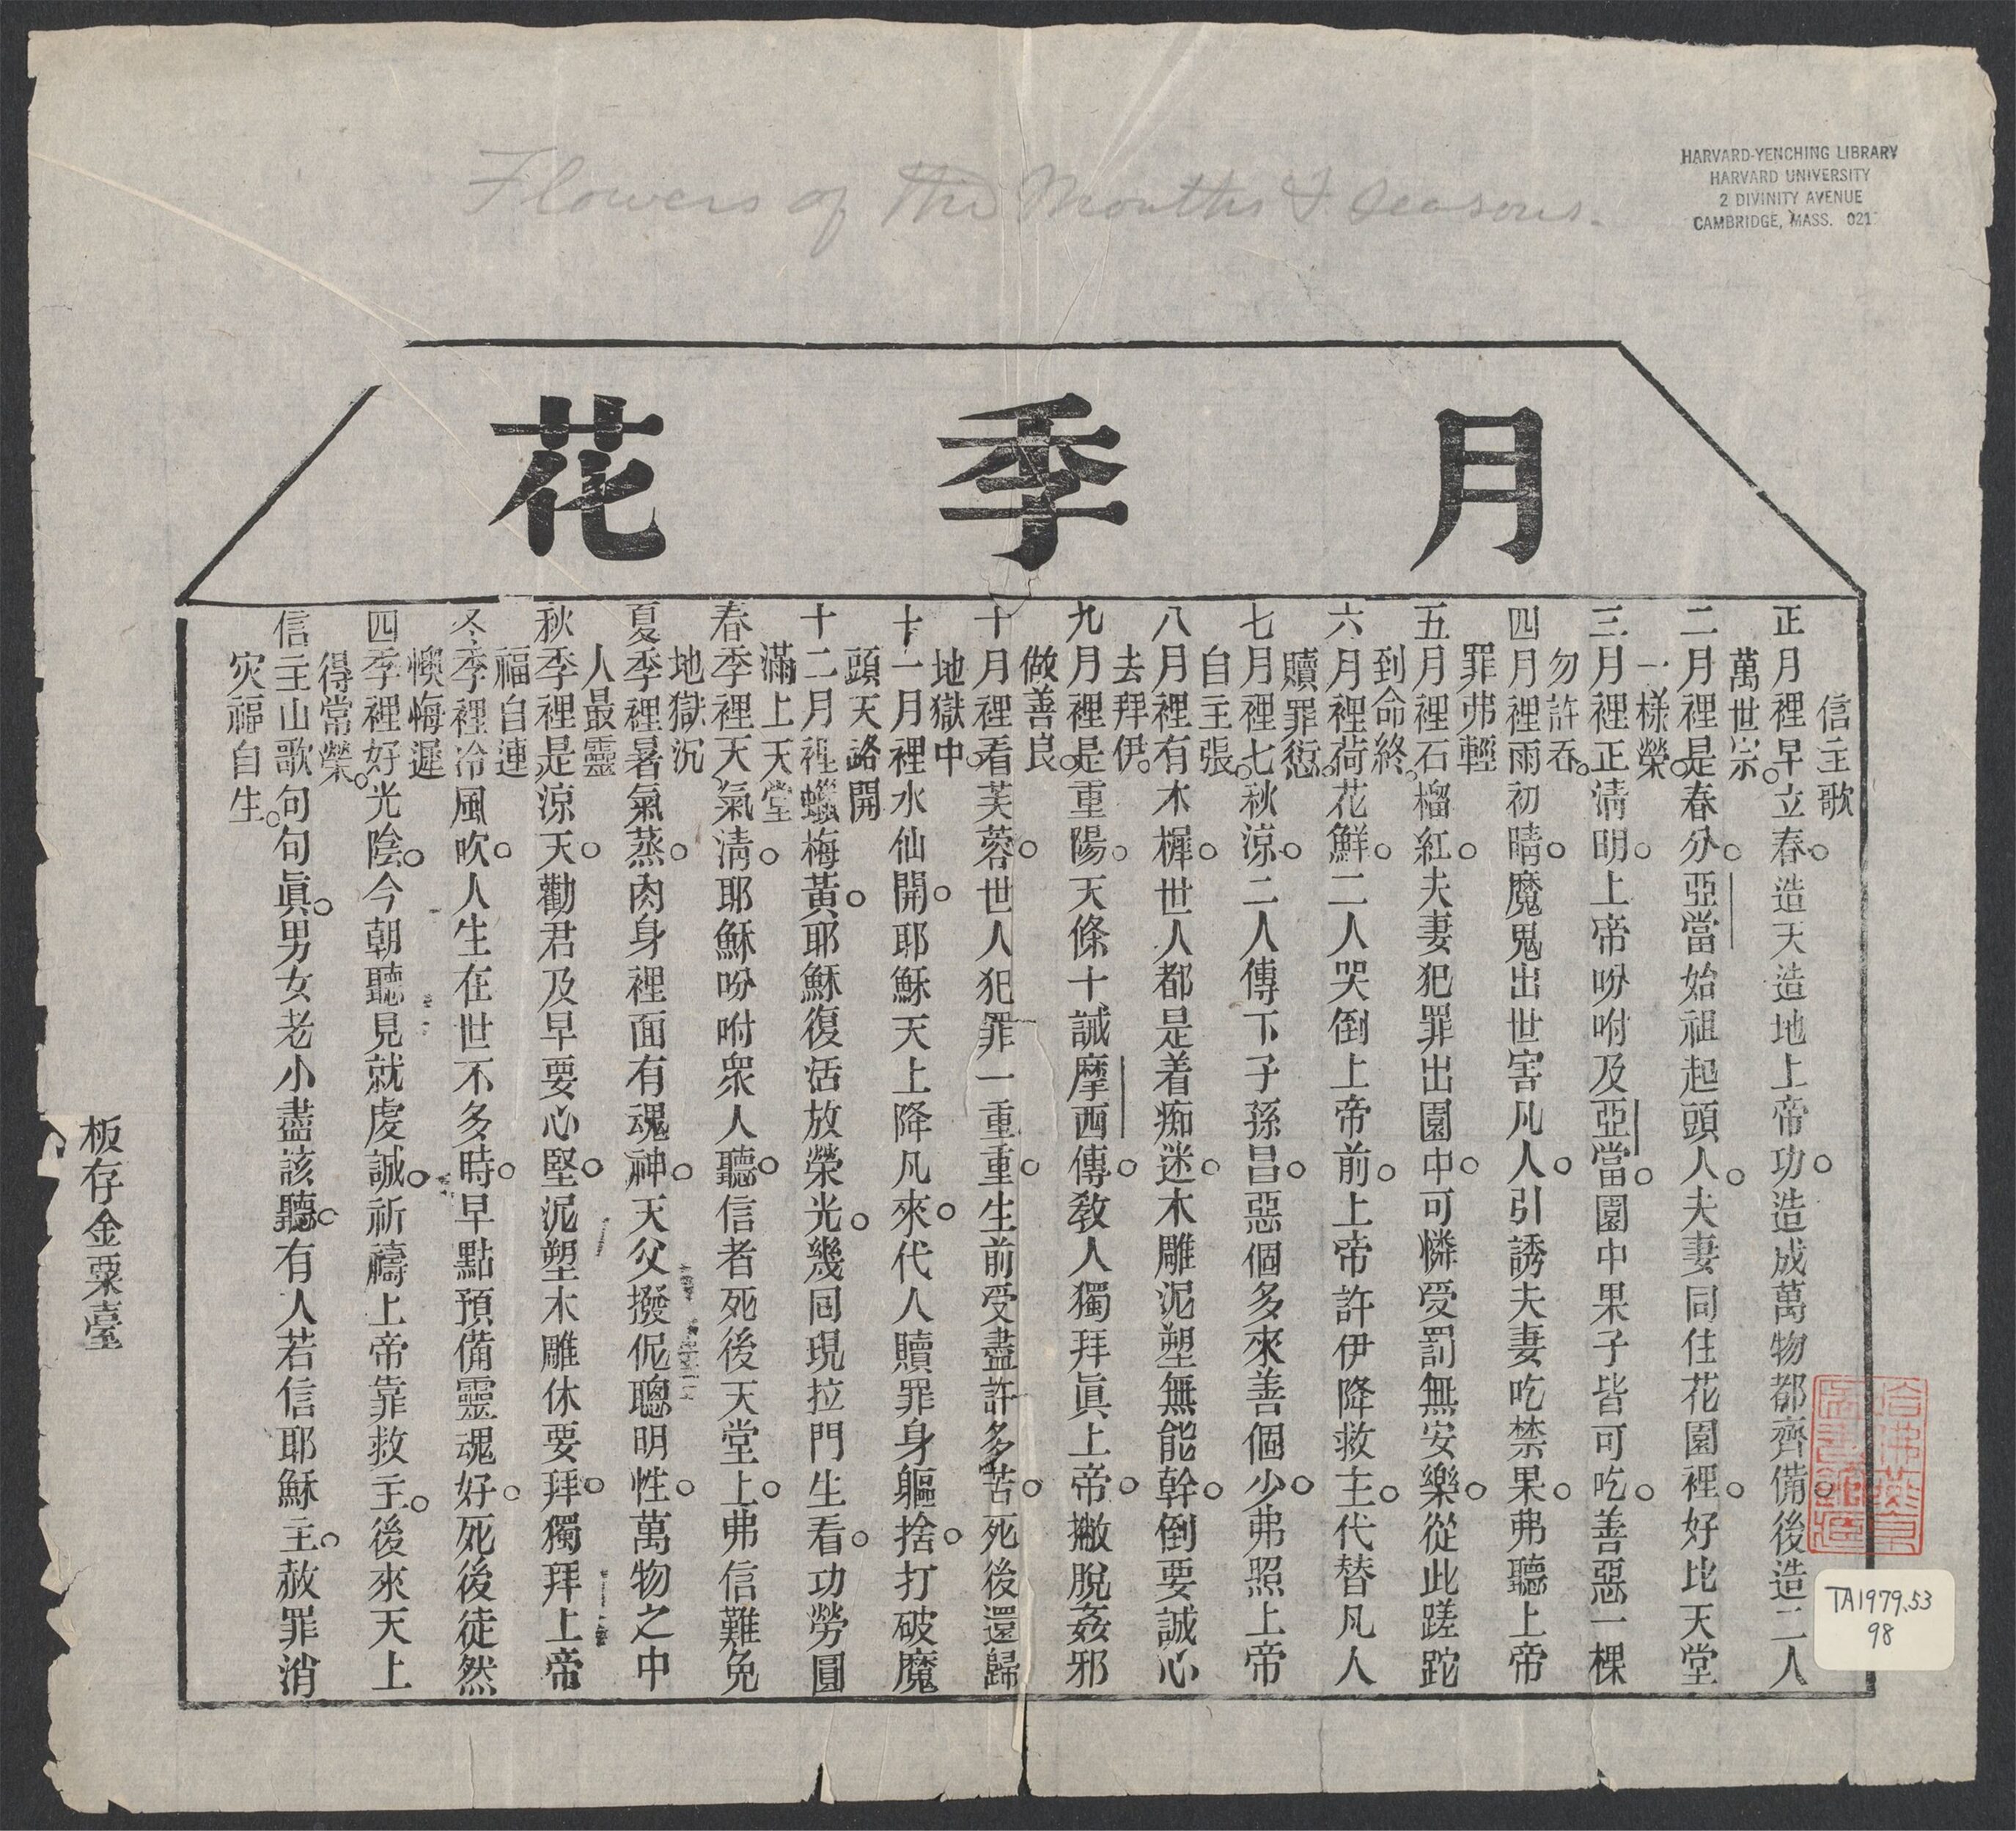 Flowers of the Months & Seasons.
HARVARD-YENCHING LIBRARY
HARVARD UNIVERSITY
2 DIVINITY AVENUE
CAMBRIDGE, MASS. 021
月季花
信主歌
正月裡早立春。造天造地上帝功。造成萬物都齊備。後造二人
萬世宗。
二月裡是春分。亞當始祖起頭人。夫妻同住花園裡。好比天堂
一樣榮。
三月裡正清明。上帝吩咐及亞當。園中果子皆可吃。善惡一棵
勿許吞。
四月裡雨初晴。魔鬼出世害凡人。引誘夫妻吃禁果。弗聽上帝
罪弗輕
五月裡石榴紅。夫妻犯罪出園中。可憐受罰無安樂。從此蹉跎
到命終。
六月裡荷花鮮。二人哭倒上帝前。上帝許伊降救主。代替凡人
贖罪愆。
七月裡七秋涼。二人傳下子孫昌。惡個多來善個少。弗照上帝
自主張。
八月裡有木樨。世人都是着痴迷。木雕泥塑無能幹。倒要誠心
去拜伊。
九月裡是重陽。天條十誡摩西傳。教人獨拜眞上帝。撇脫姦邪
做善良。
十月裡看芙蓉。世人犯罪一重重。生前受盡許多苦。死後還歸
地獄中。
十一月裡水仙開。耶穌天上降凡來。代人贖罪身軀捨。打破魔
頭天路開
十二月裡蠟梅黃。耶穌復活放榮光。幾回現拉門生看。功勞圓
滿上天堂
春季裡天氣清。耶穌吩咐衆人聽。信者死後天堂上。弗信難免
地獄沉
夏季裡暑氣蒸。肉身裡面有魂神。天父撥伲聰明性。萬物之中
人最靈
秋季裡是涼天。勸君及早要心堅。泥塑木雕休要拜。獨拜上帝
福自連
冬季裡冷風吹。人生在世不多時。早點預備靈魂好。死後徒然
懊悔遲
四季裡好光陰。今朝聽見就虔誠。祈禱上帝靠救主。後來天上
得常榮。
信主山歌句句眞。男女老小盡該聽。有人若信耶穌主。赦罪消
灾福自生。
板存金粟臺
哈佛燕京圖書館藏
TA1979.53
98